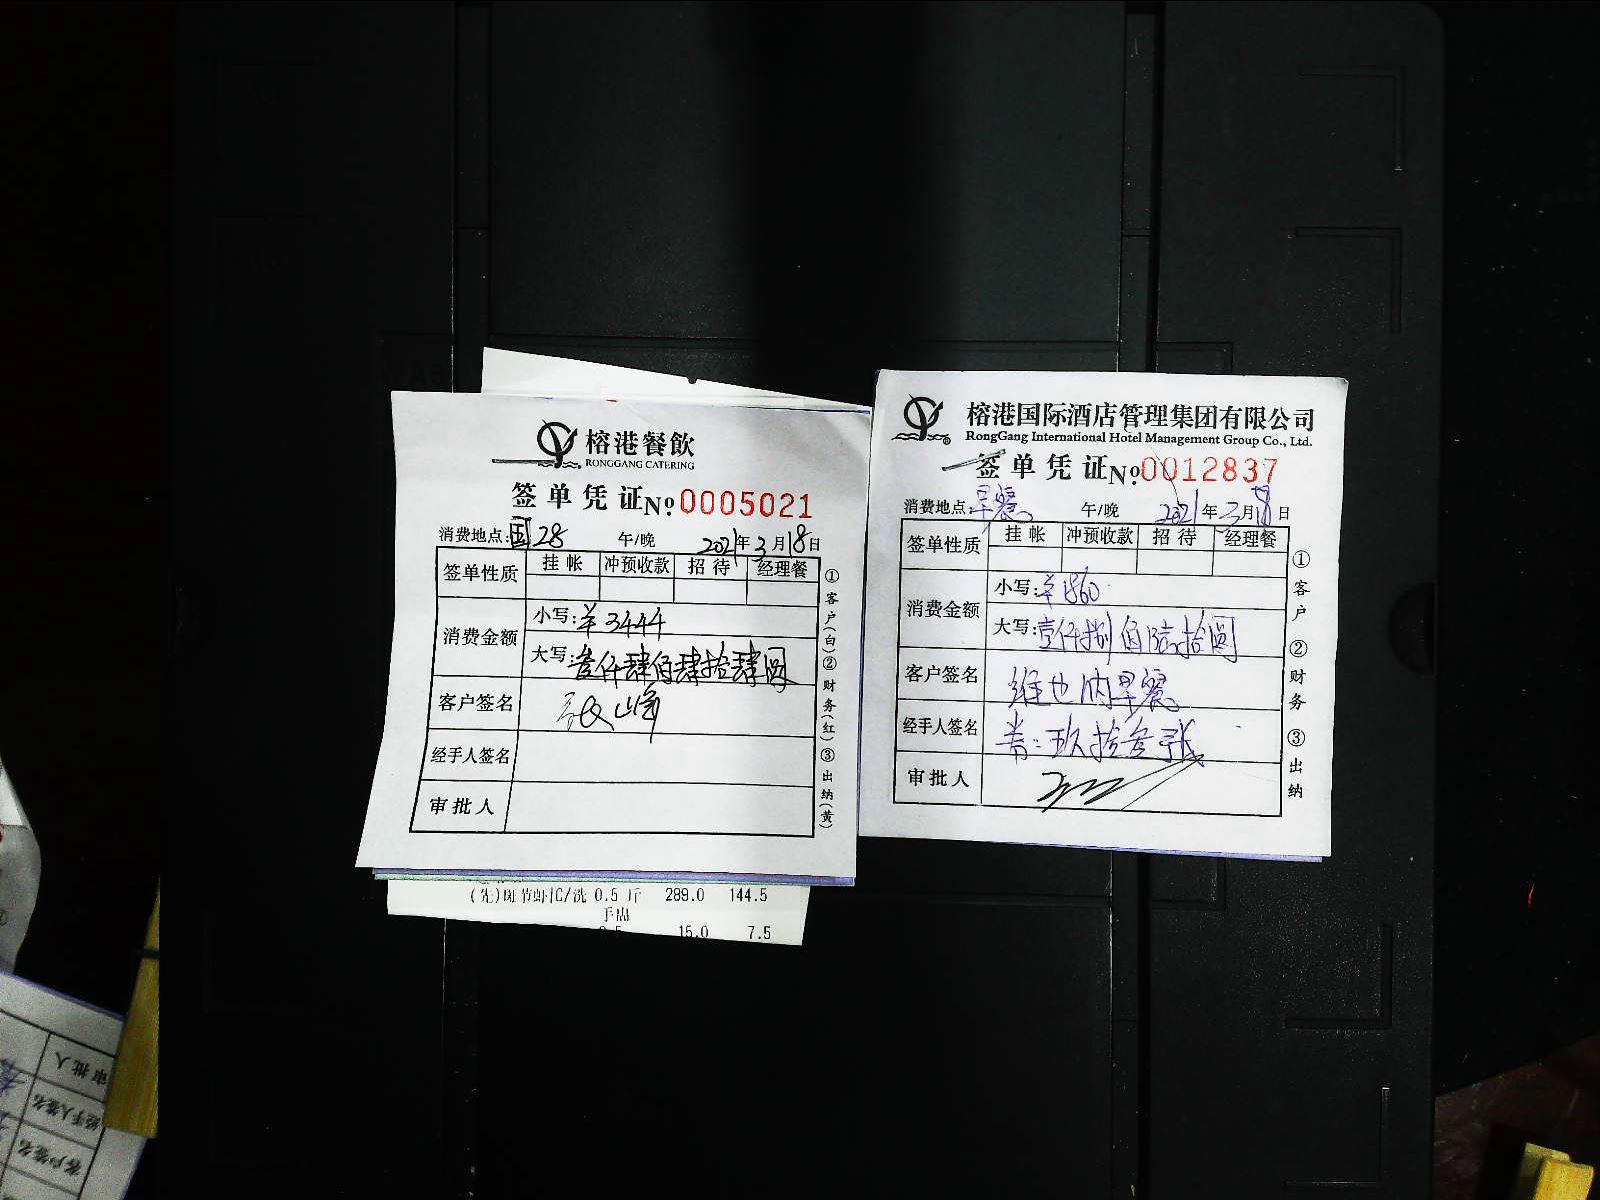 榕港餐飲
RONGGANG CATERING
签单凭证 No:0005021
消费地点:国28 午/晚 2021年3月18日
签单性质 挂帐 冲预收款 招待 经理餐
消费金额 小写:¥3444
大写:叁仟肆佰肆拾肆圆
客户签名
经手人签名
审批人
①客户(白)②财务(红)③出纳(黄)
(先)斑节虾IC/洗 0.5 斤 289.0 144.5
15.0 7.5
榕港国际酒店管理集团有限公司
RongGang International Hotel Management Group Co., Ltd.
签单凭证 No:0012837
消费地点:早餐 午/晚 2021年3月18日
签单性质 挂帐 冲预收款 招待 经理餐
消费金额 小写:¥1860
大写:壹仟捌佰陆拾圆
客户签名 维也纳早餐
经手人签名 券:玖拾叁张
审批人
①客户 ②财务 ③出纳
审批人
经手人签名
客户签名